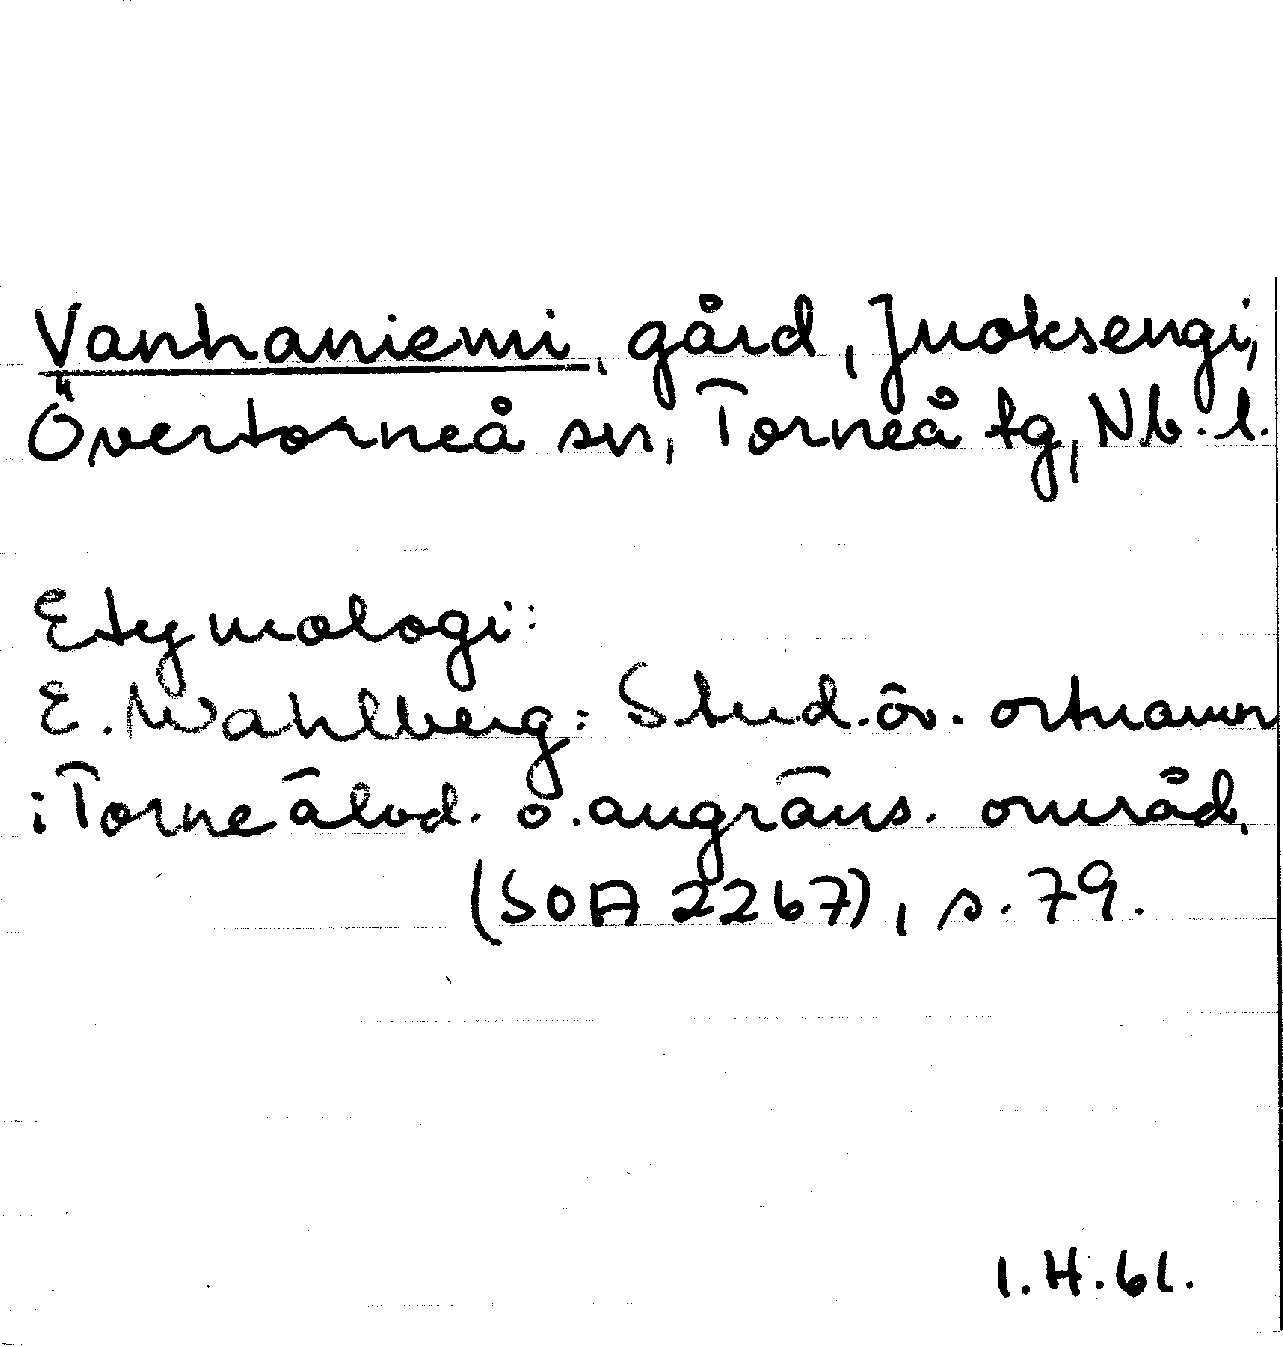 Vanhaniemi, gård, Juoksengi,
Övertorneå sn, Torneå tg, Nb. l.
Etymologi:
E. Wahlberg: Stud. öv. ortnamn
i Torne älvd. o. angräns. områd.
(SOA 2267), s. 79.
I. H. 61.